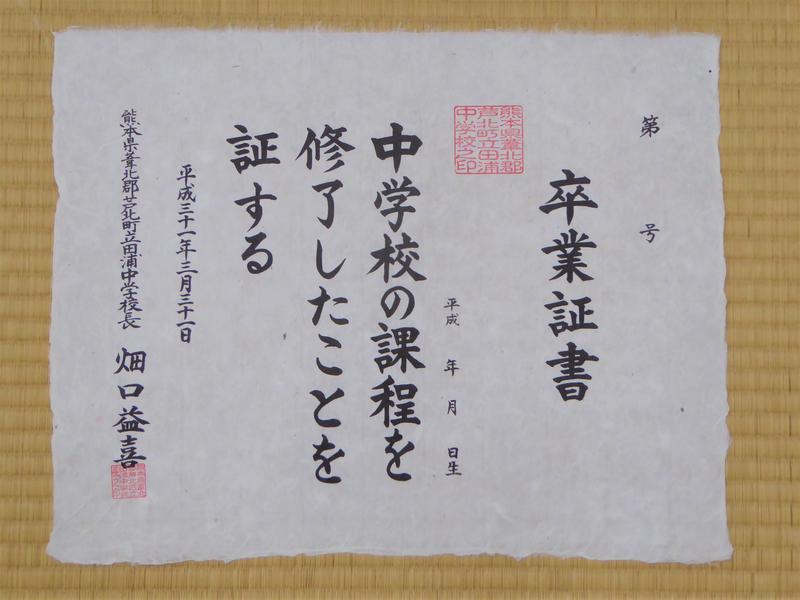 第 号
卒業証書
熊本県葦北郡
芦北町立田浦
中学校之印
平成 年 月 日生
中学校の課程を
修了したことを
証する
平成三十一年三月三十一日
熊本県葦北郡芦北町立田浦中学校長
畑口益喜